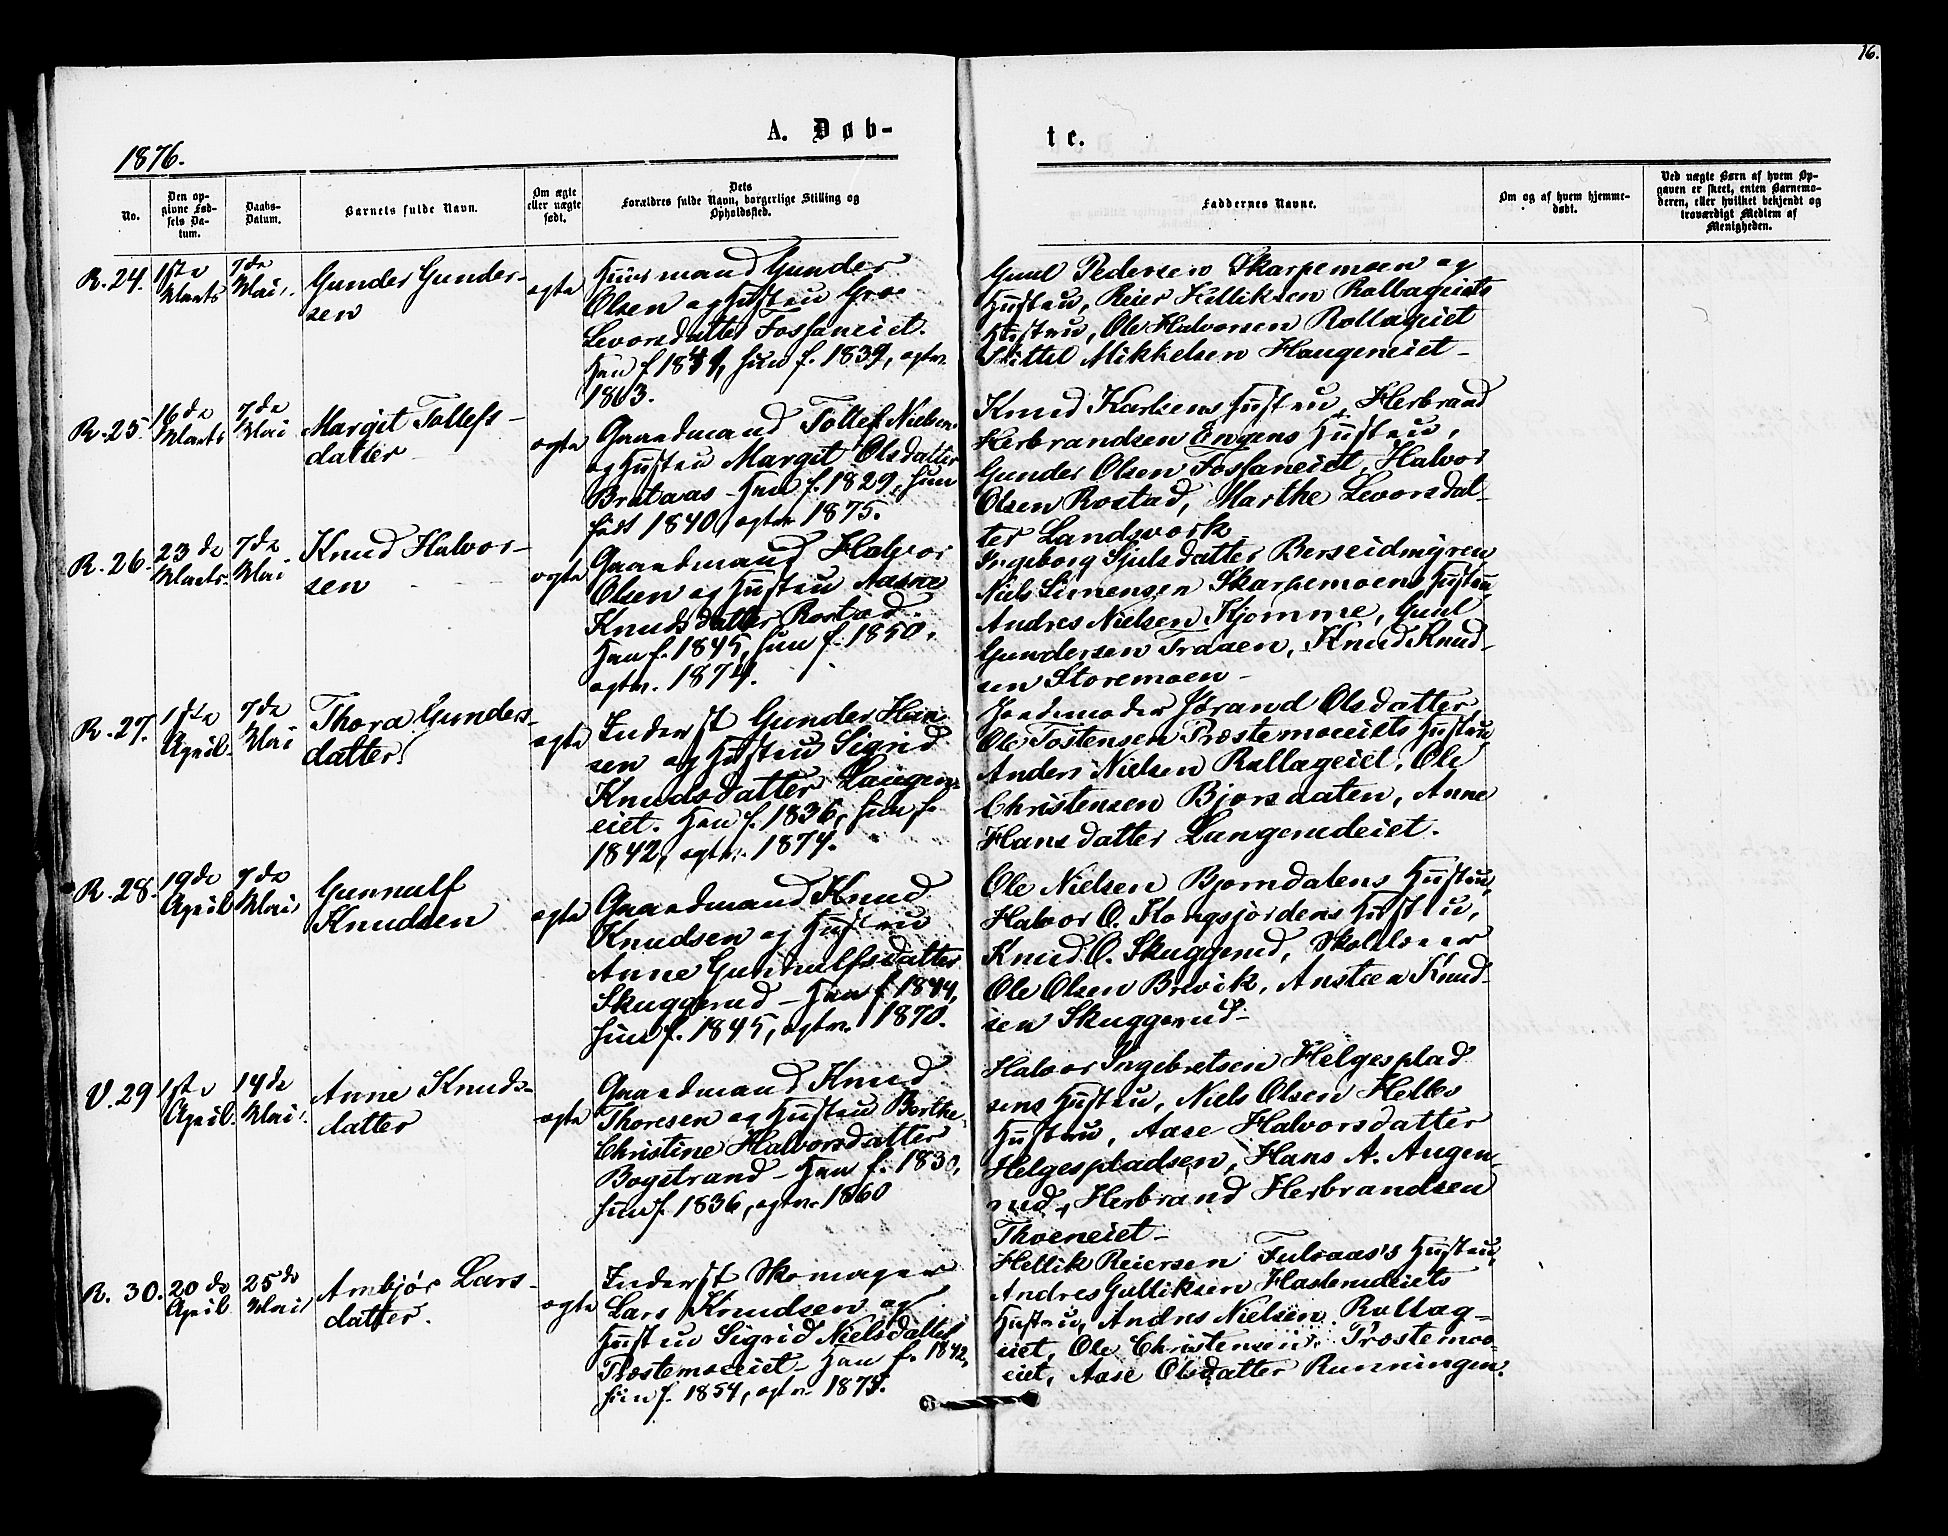 16.
A. Døb-
te.
1876.
No.
Den op-
givne Fød-
sels Da-
tum.
Daabs-
Datum.
Barnets fulde Navn.
Om ægte
eller uægte
født.
Dets
Forældres fulde Navn, borgerlige Stilling og
Opholdssted.
Faddernes Navne.
Om og af hvem hjemme-
døbt.
Ved uægte Børn af hvem Op-
gaven er skeet, enten Barnemo-
deren, eller hvilket bekjendt og
troværdigt Medlem af
Menigheden.
R. 24.
1ste
Marts
7de
Mai.
Gunder Gunder-
sen
ægte
Huusmand Gunder
Olsen og Hustru Gro
Levorsdatter Fosfaneiet.
Han f. 1841, hun f. 1839, ægtev.
1863.
Gunl Pedersen Skarpemoen og
Hustru, Reier Helliksen Rollageiets
Hustru, Ole Halvorsen Rollageiet
Kittel Mikkelsen Haugeneiet -
R. 25
16de
Marts
7de
Mai
Margit Tollefs-
datter
ægte
Gaardmand Tollef Nielsen
og Hustru Margit Olsdatter
Brataas - Han f. 1829, hun
født 1840, ægtev. 1875.
Knud Kærliens Hustru, Herbrand
Herbrandsen Engens Hustru,
Gunder Olsen Fosfaneiet, Halvor
Olsen Rostad, Marthe Levorsdat-
ter Landsverk
R. 26.
23de
Marts.
7de
Mai
Knud Halvor-
sen
ægte
Gaardmand Halvor
Olsen og Hustru Aasne
Knudsdatter Rostad.
Han f. 1845, hun f. 1850.
ægtev. 1874.
Ingeborg Gjulsdatter Berseidmyren
Niels Simensen Skarpemoens Hustru
Andres Nielsen Kjomme, Gunl
Gundersen Traaen, Knud Knud-
sen Storemoen -
R. 27.
1ste
April.
7de
Mai
Thora Gunders-
datter
ægte
Inderst Gunder Han
sen og Hustru Sigrid
Knudsdatter Langeru-
eiet. Han f. 1836, hun f.
1842, ægtev. 1874.
Jordemoder Jørand Olsdatter
Ole Tostensen Præstemoeiets Hustru,
Anders Nielsen Rollageiet, Ole
Christensen Bjørsdaten, Anne
Hansdatter Langerudeiet.
R. 28.
19de
April
7de
Mai
Gunnulf
Knudsen
ægte
Gaardmand Knud
Knudsen og Hustru
Anne Gunnulfsdatter
Skuggerud - Han f. 1844,
hun f. 1845, ægtev. 1870.
Ole Nielsen Bjørndalens Hustru,
Halvor O. Kongsjordens Hustru,
Knud O. Skuggerud, Skolelærer
Ole Olsen Brevik, Anstien Knud-
sen Skuggerud -
V. 29
1ste
April.
14de
Mai.
Anne Knuds-
datter
ægte
Gaardmand Knud
Thoresen og Hustru Berthe
Christine Halvorsdatter
Bogstrand - Han f. 1830,
hun f. 1836, ægtev. 1860
Halvor Ingebretsen Helgesplad
sens Hustru, Niels Olsen Helles
Hustru, Aase Halvorsdatter
Helgespladsen, Hans A. Augen-
rud, Herbrand Herbrandsen
Thoeneiet -
R. 30.
20de
April
25de
Mai
Ambjør Lars-
datter.
ægte
Inderst Skomager
Lars Knudsen og
Hustru Sigrid Nielsdatter
Præstemoeeiet - Han f. 1842,
hun f. 1854, ægtev. 1875.
Hellik Reiersen Fulsaas's Hustru,
Andres Gulliksen Haslerudeiets
Hustru, Andres Nielsen Rollag-
eiet, Ole Christensen Præstemoe-
eiet, Aase Olsdatter Runningen.